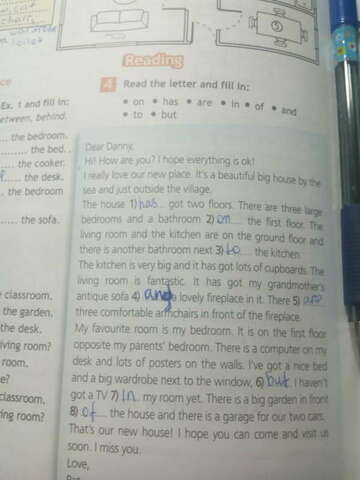 ⑤
Reading
4 Read the letter and fill in:
• on • has • are • in • of • and
• to • but
ce
Ex. 1 and fill in:
etween, behind.
... the bedroom.
... the bed.
... the cooker.
... the desk.
... the bedroom
... the sofa.
e classroom.
the garden.
the desk.
living room?
room.
e?
classroom.
ing room?
Dear Danny,
Hi! How are you? I hope everything is ok!
I really love our new place. It's a beautiful big house by the
sea and just outside the village.
The house 1) has got two floors. There are three large
bedrooms and a bathroom 2) on the first floor. The
living room and the kitchen are on the ground floor and
there is another bathroom next 3) to the kitchen.
The kitchen is very big and it has got lots of cupboards. The
living room is fantastic. It has got my grandmother's
antique sofa 4) and a lovely fireplace in it. There 5) are
three comfortable armchairs in front of the fireplace.
My favourite room is my bedroom. It is on the first floor
opposite my parents' bedroom. There is a computer on my
desk and lots of posters on the walls. I've got a nice bed
and a big wardrobe next to the window, 6) but I haven't
got a TV 7) in my room yet. There is a big garden in front
8) of the house and there is a garage for our two cars.
That's our new house! I hope you can come and visit us
soon. I miss you.
Love,